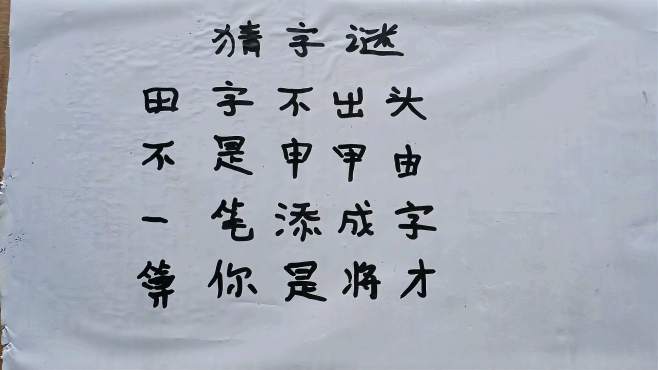 猜字谜
田字不出头
不是申甲由
一笔添成字
算你是将才